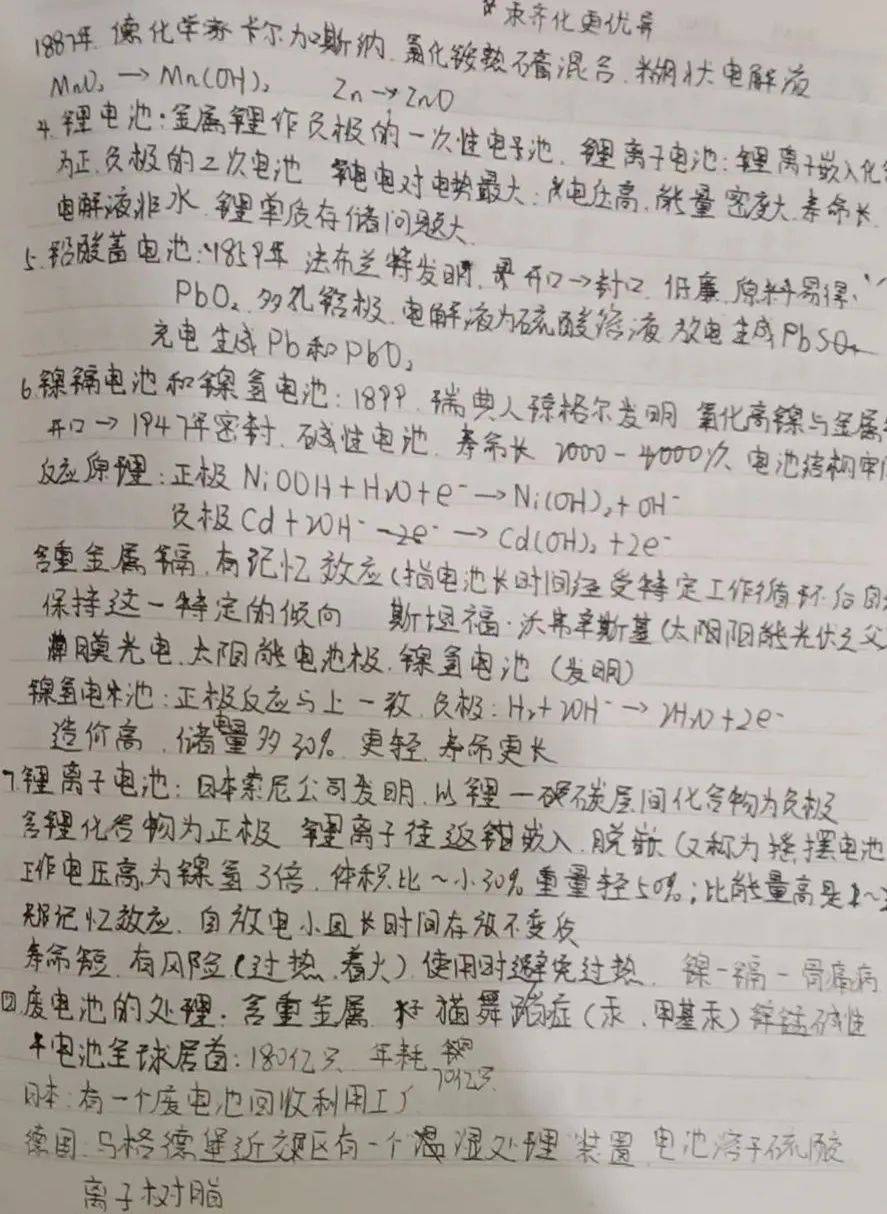 汞齐化更优异
1887年 德化学家卡尔加斯纳 氯化铵熟石膏混合 糊状电解液
MnO₂ → Mn(OH)₂ Zn → ZnO
4. 锂电池:金属锂作负极的一次性电池. 锂离子电池:锂离子嵌入化
为正.负极的2次电池 锂电电对电势最大: 电压高.能量密度大.寿命长.
电解液非水.锂单质存储问题大.
5. 铅酸蓄电池:1859年 法布兰特发明. 开口→封口. 低廉.原料易得.
PbO₂.多孔铅极.电解液为硫酸溶液 放电生成PbSO₄
充电生成Pb和PbO₂
6. 镍镉电池和镍氢电池:1899.瑞典人琼格尔发明 氧化高镍与金属
开口→1947年密封.碱性电池.寿命长 2000-4000次.电池结构牢
反应原理:正极 NiOOH+H₂O+e⁻→Ni(OH)₂+OH⁻
负极 Cd+2OH⁻ → Cd(OH)₂+2e⁻
含重金属镉.有记忆效应(指电池长时间经受特定工作循环后自
保持这一特定的倾向 斯坦福·沃弗辛斯基(太阳能光伏之父
薄膜光电.太阳能电池极.镍氢电池(发明)
镍氢电池:正极反应与上一致.负极:H₂+2OH⁻→2H₂O+2e⁻
造价高.储电量多30%.更轻.寿命更长
7. 锂离子电池:日本索尼公司发明.以锂-碳层间化合物为负极
含锂化合物为正极 锂离子往返嵌入.脱嵌(又称为摇摆电池
工作电压高.为镍氢3倍.体积比~小30% 重量轻50%;比能量高是2~3
无记忆效应.自放电小且长时间存放不变质
寿命短.有风险(过热.着火)使用时避免过热. 镍-镉-骨痛病
废电池的处理:含重金属 猫舞蹈症(汞.甲基汞)锌锰碱性
干电池全球居首:180亿只 年耗 70亿只
日本:有一个废电池回收利用工厂
德国:马格德堡近郊区有一个湿处理装置 电池溶于硫酸
离子树脂